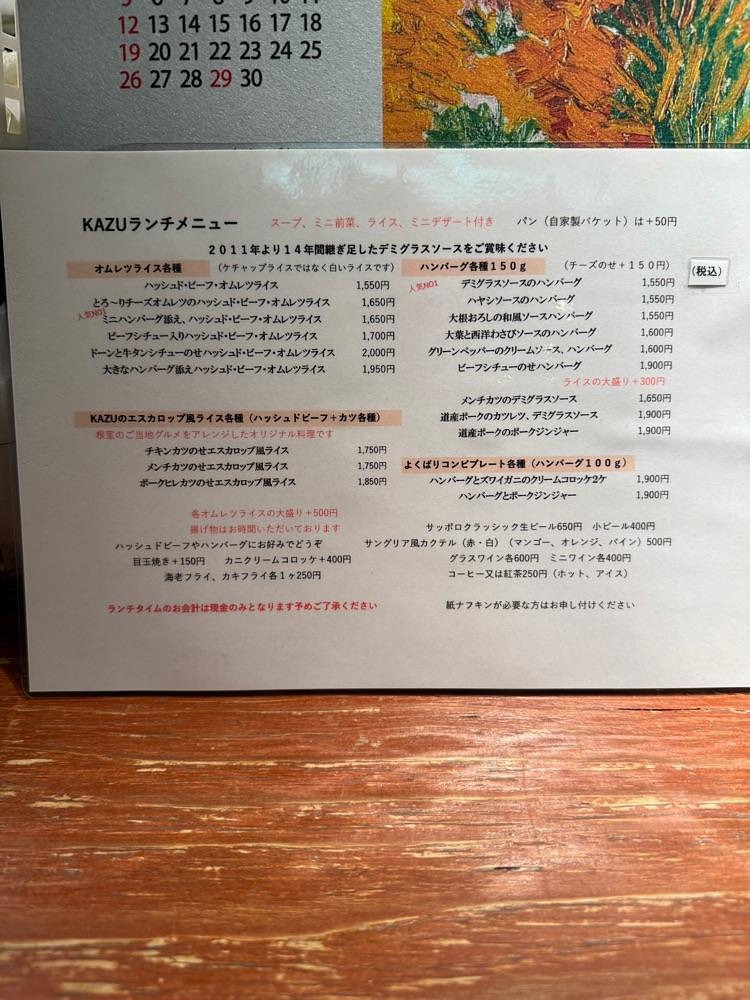 5 6 7 8 9 10 11
12 13 14 15 16 17 18
19 20 21 22 23 24 25
26 27 28 29 30
KAZUランチメニュー スープ、ミニ前菜、ライス、ミニデザート付き パン（自家製バケット）は＋50円
２０１１年より１４年間継ぎ足したデミグラスソースをご賞味ください
オムレツライス各種 （ケチャップライスではなく白いライスです）
ハッシュド・ビーフ・オムレツライス 1,550円
とろ～りチーズオムレツのハッシュド・ビーフ・オムレツライス 1,650円
人気NO1
ミニハンバーグ添え、ハッシュド・ビーフ・オムレツライス 1,650円
ビーフシチュー入りハッシュド・ビーフ・オムレツライス 1,700円
ドーンと牛タンシチューのせハッシュド・ビーフ・オムレツライス 2,000円
大きなハンバーグ添えハッシュド・ビーフ・オムレツライス 1,950円
KAZUのエスカロップ風ライス各種（ハッシュドビーフ＋カツ各種）
根室のご当地グルメをアレンジしたオリジナル料理です
チキンカツのせエスカロップ風ライス 1,750円
メンチカツのせエスカロップ風ライス 1,750円
ポークヒレカツのせエスカロップ風ライス 1,850円
各オムレツライスの大盛り＋500円
揚げ物はお時間いただいております
ハッシュドビーフやハンバーグにお好みでどうぞ
目玉焼き＋150円 カニクリームコロッケ＋400円
海老フライ、カキフライ各１ヶ250円
ランチタイムのお会計は現金のみとなります予めご了承ください
ハンバーグ各種１５０ｇ （チーズのせ＋１５０円）
（税込）
人気NO1
デミグラスソースのハンバーグ 1,550円
ハヤシソースのハンバーグ 1,550円
大根おろしの和風ソースハンバーグ 1,550円
大葉と西洋わさびソースのハンバーグ 1,600円
グリーンペッパーのクリームソース、ハンバーグ 1,600円
ビーフシチューのせハンバーグ 1,900円
ライスの大盛り＋300円
メンチカツのデミグラスソース 1,650円
道産ポークのカツレツ、デミグラスソース 1,900円
道産ポークのポークジンジャー 1,900円
よくばりコンビプレート各種（ハンバーグ１００ｇ）
ハンバーグとズワイガニのクリームコロッケ2ケ 1,900円
ハンバーグとポークジンジャー 1,900円
サッポロクラッシック生ビール650円 小ビール400円
サングリア風カクテル（赤・白）（マンゴー、オレンジ、パイン）500円
グラスワイン各600円 ミニワイン各400円
コーヒー又は紅茶250円（ホット、アイス）
紙ナフキンが必要な方はお申し付けください